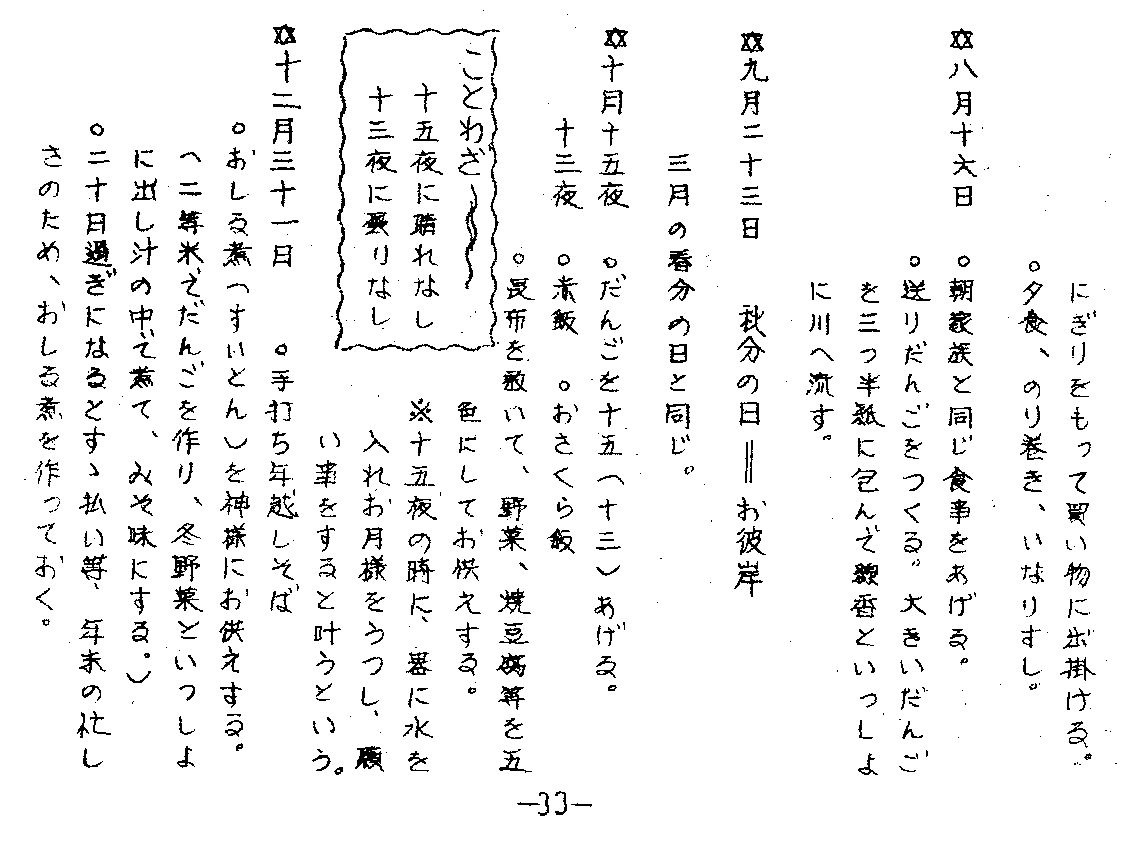 にぎりをもって買い物に出掛ける。
○夕食、のり巻き、いなりすし。
✡八月十六日 ○朝家族と同じ食事をあげる。
○送りだんごをつくる。大きいだんご
を三つ半紙に包んで線香といっしょ
に川へ流す。
✡九月二十三日 秋分の日＝お彼岸
三月の春分の日と同じ。
✡十月十五夜 ○だんごを十五(十三)あげる。
十三夜 ○赤飯 ○おさくら飯
○昆布を敷いて、野菜、焼豆腐等を五
色にしてお供えする。
※十五夜の時に、器に水を
入れお月様をうつし、願
い事をすると叶うという。
ことわざ〜〜
十五夜に晴れなし
十三夜に曇りなし
✡十二月三十一日 ○手打ち年越しそば
○おしる煮(すいとん)を神様にお供えする。
(二等米でだんごを作り、冬野菜といっしょ
に出し汁の中で煮て、みそ味にする。)
○二十日過ぎになるとすゝ払い等、年末の忙し
さのため、おしる煮を作っておく。
—33—